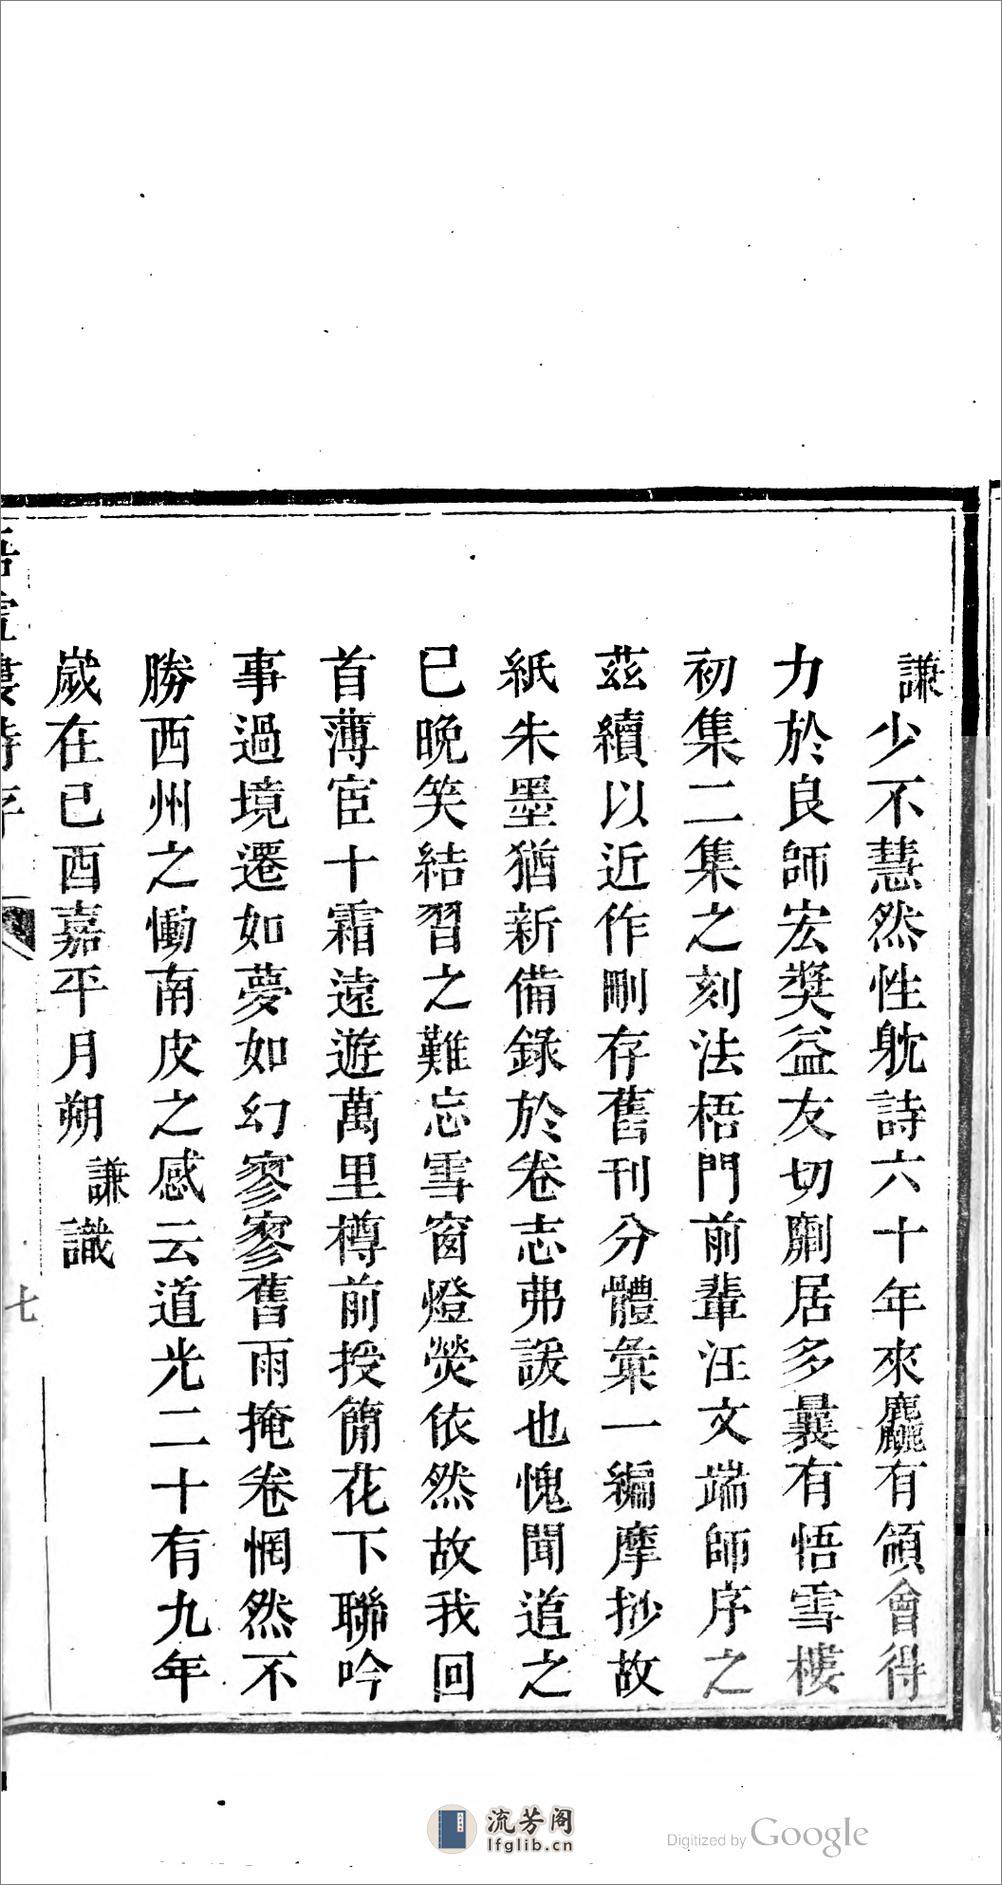 謙少不慧然性躭詩六十年來麤有領會得
力於良師宏奬益友切劘居多曩有悟雪樓
初集二集之刻法梧門前輩汪文端師序之
茲續以近作刪存舊刊分體彙一編摩挱故
紙朱墨猶新備錄於卷志弗諼也愧聞道之
已晚笑結習之難忘雪窗燈熒依然故我回
首薄宦十霜遠遊萬里樽前授簡花下聯吟
事過境遷如夢如幻寥寥舊雨掩卷惘然不
勝西州之慟南皮之感云道光二十有九年
歲在己酉嘉平月朔謙識
七
流芳阁
lfglib.cn
Digitized by Google